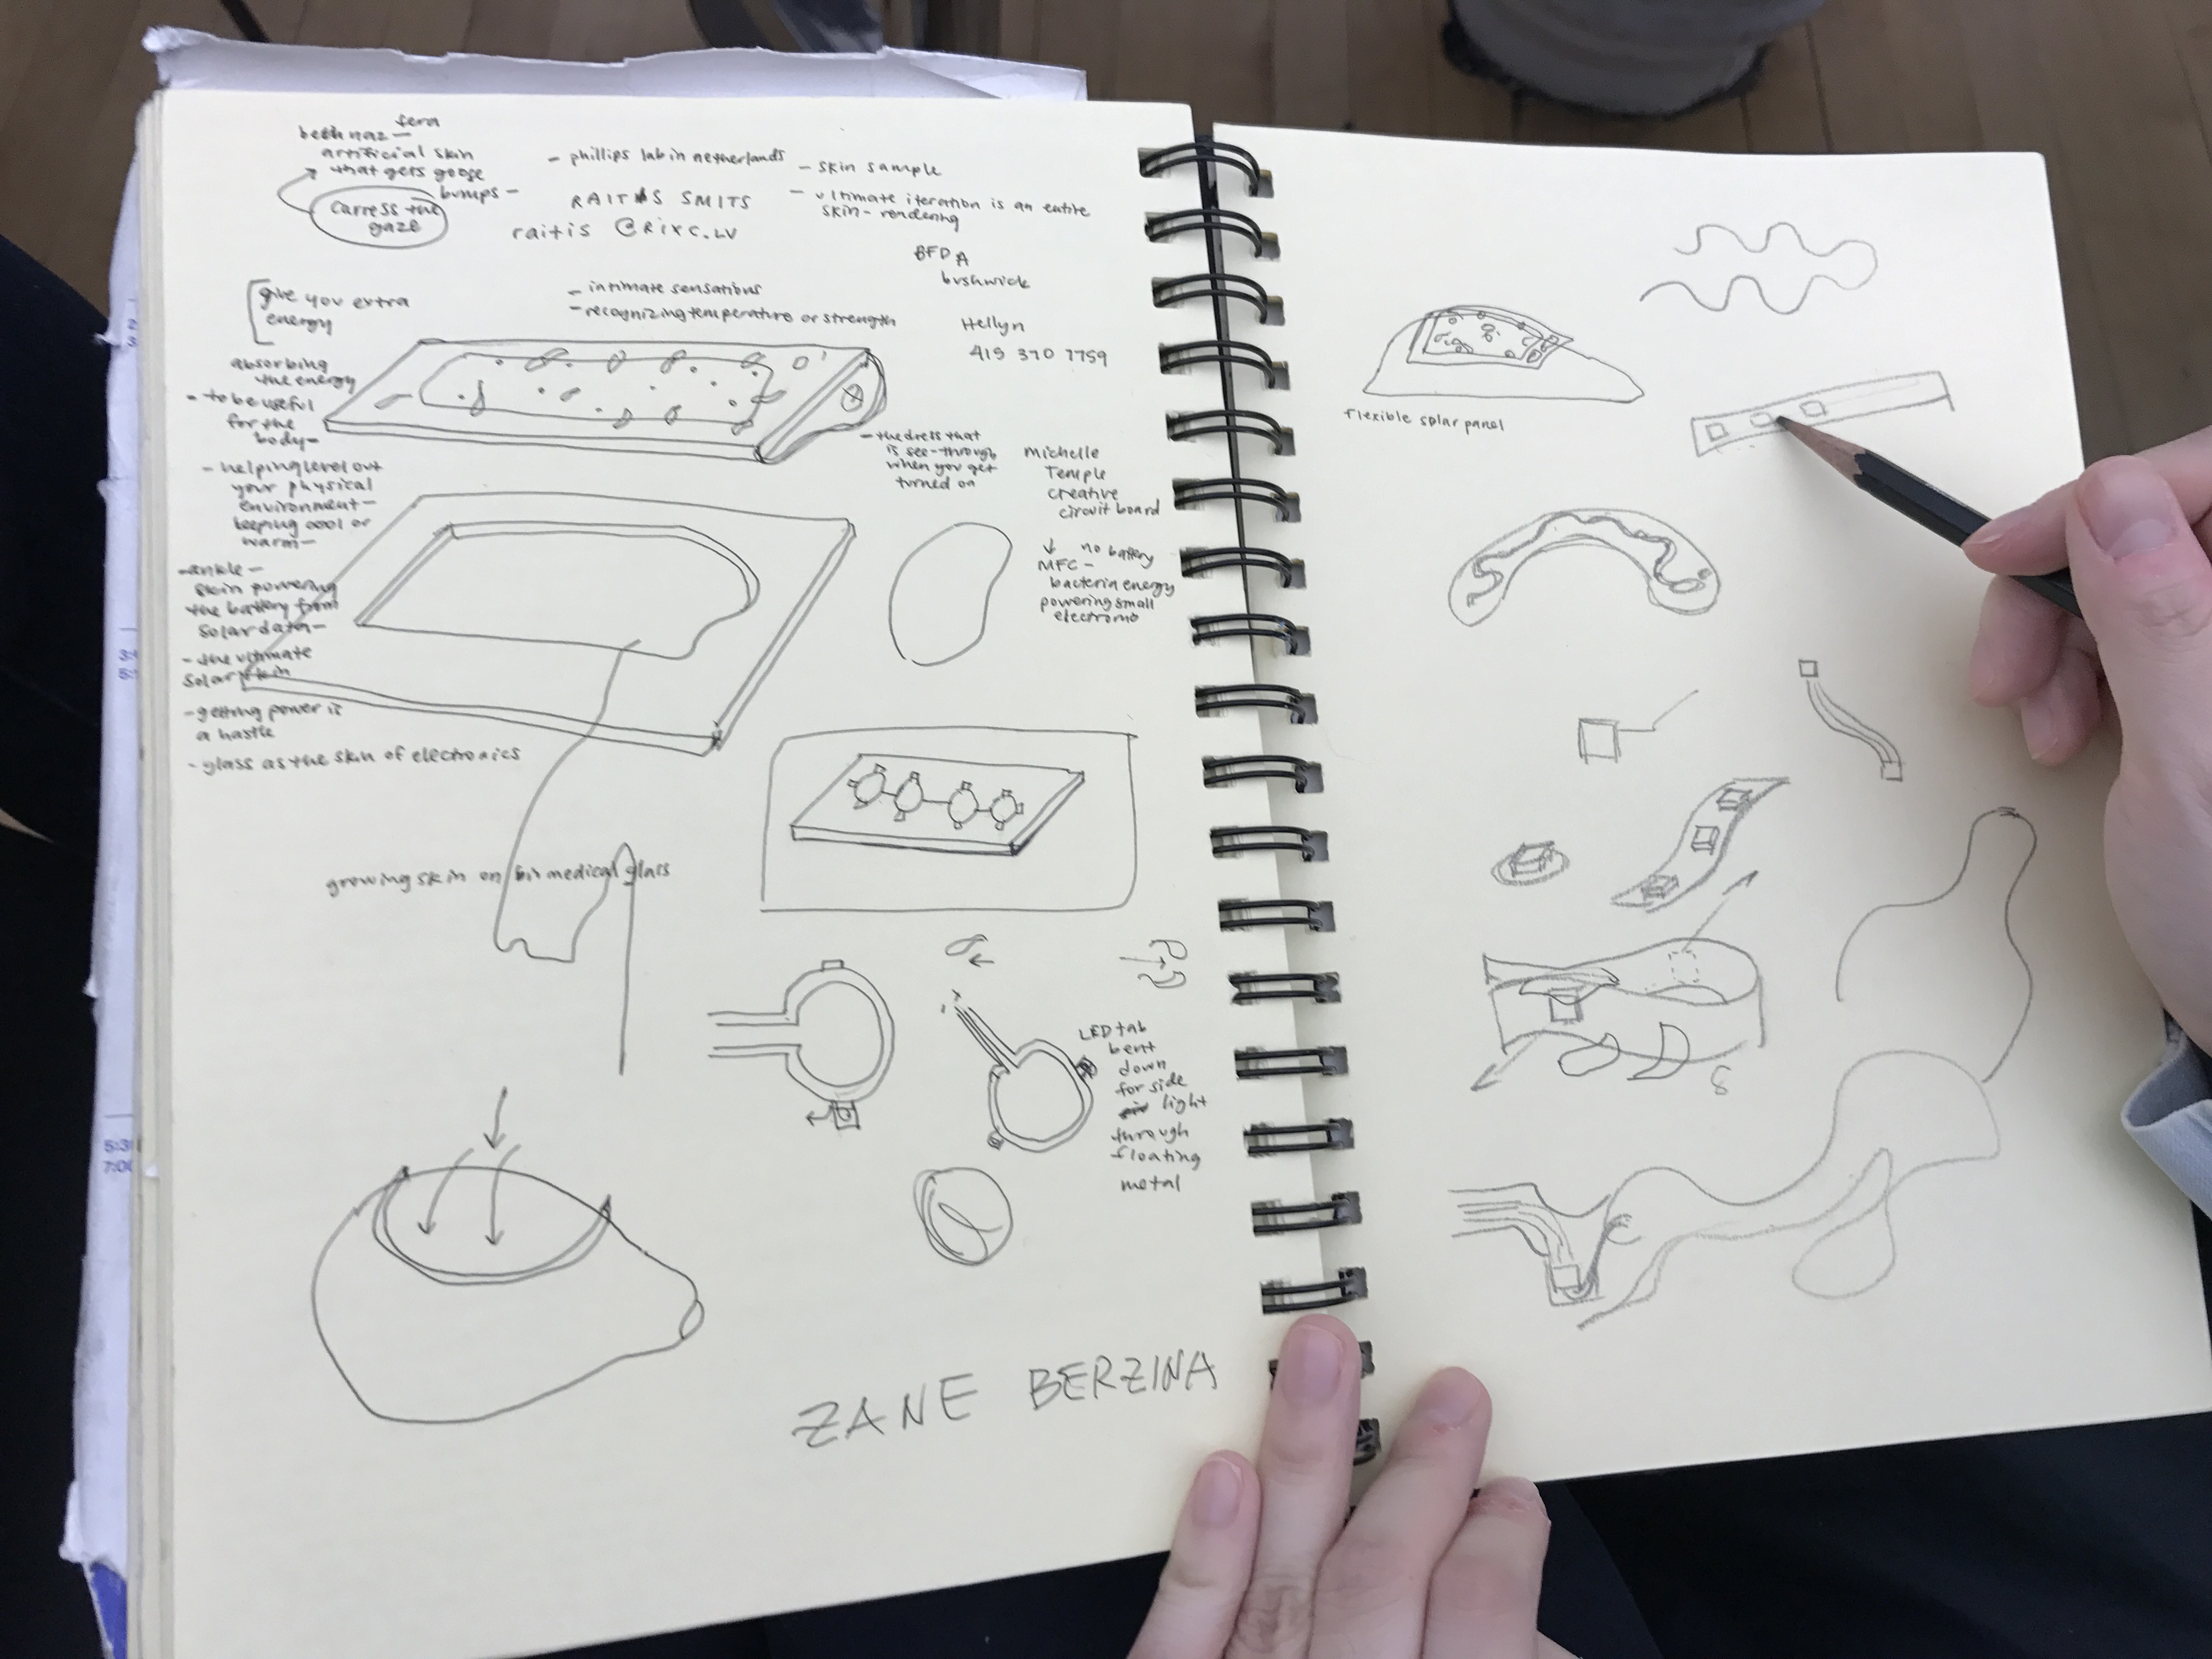 fera
beth naz —
artificial skin
that gets goose
bumps —
Carress the
gaze
— phillips lab in netherlands
RAITIS SMITS
raitis @RIXC.LV
— skin sample
— ultimate iteration is an entire
skin - rendering
BFDA
bushwick
Hellyn
419 370 7759
give you extra
energy
— intimate sensations
— recognizing temperature or strength
absorbing
the energy
- to be useful
for the
body —
- helping level out
your physical
environment —
keeping cool or
warm —
- ankle —
skin powering
the battery from
solar data —
- the ultimate
solar skin
- getting power is
a hastle
- glass as the skin of electronics
— the dress that
is see-through
when you get
turned on
Michelle
Temple
creative
circuit board
↓ no battery
MFC —
bacteria energy
powering small
electrons
growing skin on bio medical glass
LED tab
bent
down
for side
light
through
floating
metal
ZANE BERZINA
flexible solar panel
8
3:
5:
5:3
7:00